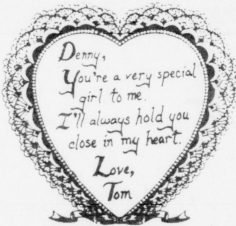 Denny,
You're a very special
girl to me.
I'll always hold you
close in my heart.
Love,
Tom